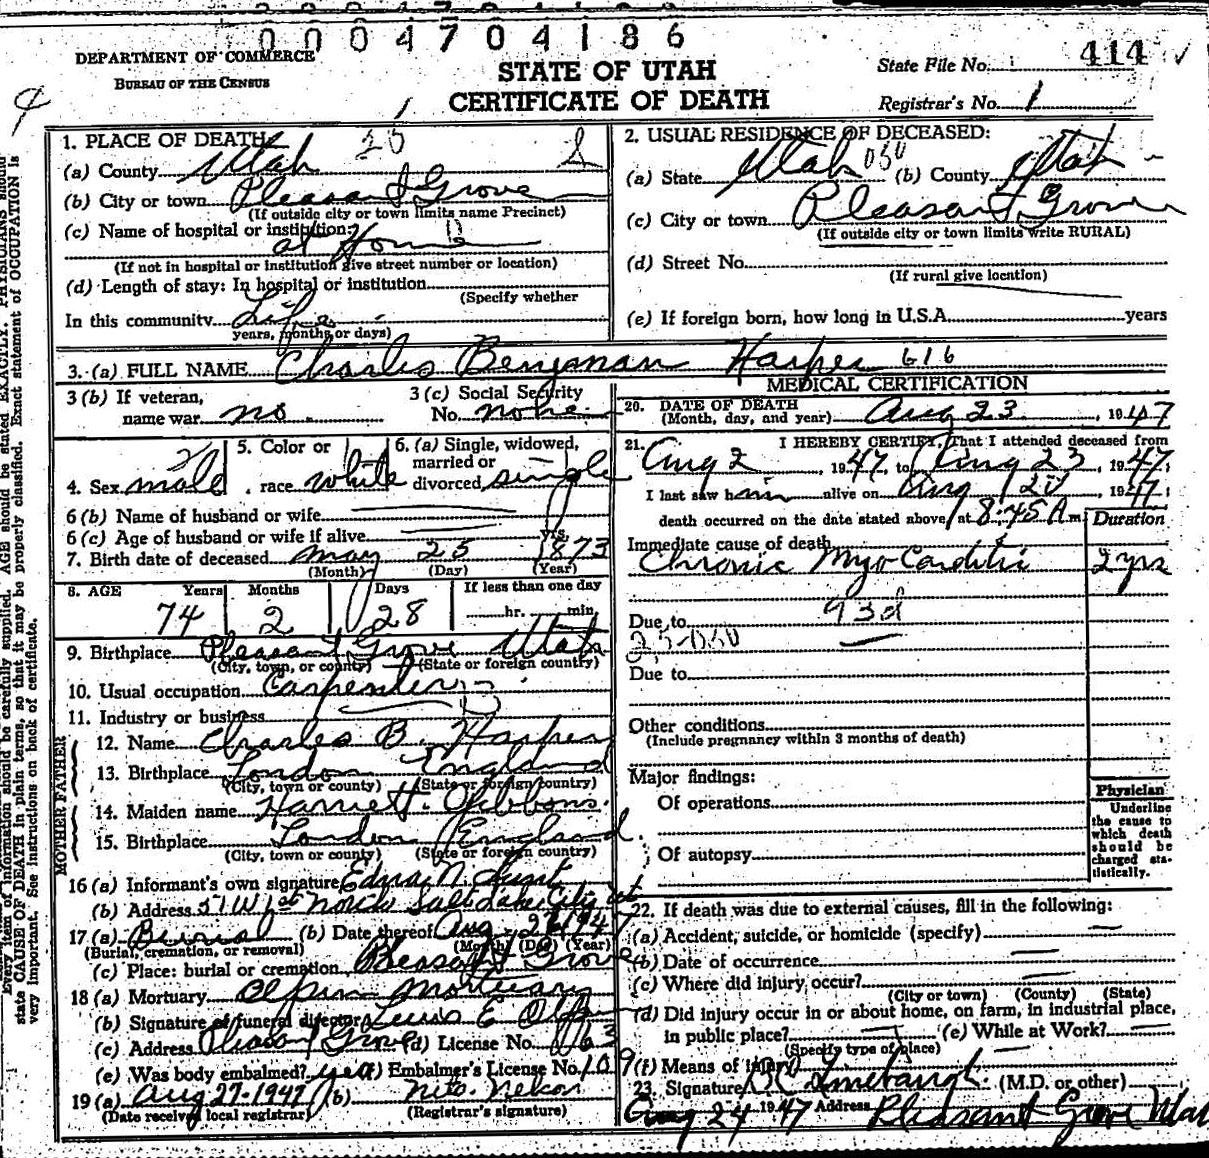 0 0 0 4 7 0 4 1 8 6
DEPARTMENT OF COMMERCE
BUREAU OF THE CENSUS
STATE OF UTAH
CERTIFICATE OF DEATH
State File No. 414
Registrar's No. 1
1. PLACE OF DEATH:
(a) County Utah
(b) City or town Pleasant Grove
(If outside city or town limits name Precinct)
(c) Name of hospital or institution:
at Home
(If not in hospital or institution give street number or location)
(d) Length of stay: In hospital or institution
(Specify whether
In this community Life
years, months or days)
2. USUAL RESIDENCE OF DECEASED:
(a) State Utah 050 (b) County Utah
(c) City or town Pleasant Grove
(If outside city or town limits write RURAL)
(d) Street No.
(If rural give location)
(e) If foreign born, how long in U.S.A. years
3. (a) FULL NAME Charles Benjaman Harper 616
3 (b) If veteran,
name war no
3 (c) Social Security
No. none
4. Sex male
5. Color or
race white
6. (a) Single, widowed,
married or
divorced single
6 (b) Name of husband or wife
6 (c) Age of husband or wife if alive yrs.
7. Birth date of deceased may 25 1873
(Month) (Day) (Year)
8. AGE Years Months Days If less than one day
74 2 28 hr. min.
9. Birthplace Pleasant Grove Utah
(City, town, or county) (State or foreign country)
10. Usual occupation Carpenter
11. Industry or business
FATHER
12. Name Charles B. Harper
13. Birthplace London England
(City, town or county) (State or foreign country)
MOTHER
14. Maiden name Harriett Gibbons
15. Birthplace London England
(City, town or county) (State or foreign country)
16 (a) Informant's own signature Edna N.
(b) Address 51 W 1st North Salt Lake City Ut
17 (a) Burial (b) Date thereof Aug. 26 1947
(Burial, cremation, or removal) (Month) (Day) (Year)
(c) Place: burial or cremation Pleasant Grove
18 (a) Mortuary Olpin Mortuary
(b) Signature of funeral director E Olpin
(c) Address Pleasant Grove (d) License No. 163
(e) Was body embalmed? yes (f) Embalmer's License No. 109
19 (a) Aug 27-1947 (b)
(Date received local registrar) (Registrar's signature)
MEDICAL CERTIFICATION
20. DATE OF DEATH
(Month, day, and year) Aug 23, 1947
21. I HEREBY CERTIFY, That I attended deceased from
Aug 2, 1947, to Aug 23, 1947;
I last saw him alive on Aug 20, 1947;
death occurred on the date stated above, at 8:45 A m. Duration
Immediate cause of death
Chronic Myocarditis 2 yrs
93d
Due to
25-050
Due to
Other conditions
(Include pregnancy within 3 months of death)
Major findings:
Of operations
Of autopsy
Physician
Underline
the cause to
which death
should be
charged sta-
tistically.
22. If death was due to external causes, fill in the following:
(a) Accident, suicide, or homicide (specify)
(b) Date of occurrence
(c) Where did injury occur?
(City or town) (County) (State)
(d) Did injury occur in or about home, on farm, in industrial place,
in public place? (e) While at Work?
(Specify type of place)
(f) Means of injury
23. Signature (M.D. or other)
Aug 24 1947 Address Pleasant Grove Utah
Every item of information should be carefully supplied. AGE should be stated EXACTLY. PHYSICIANS should
state CAUSE OF DEATH in plain terms, so that it may be properly classified. Exact statement of OCCUPATION is
very important. See instructions on back of certificate.